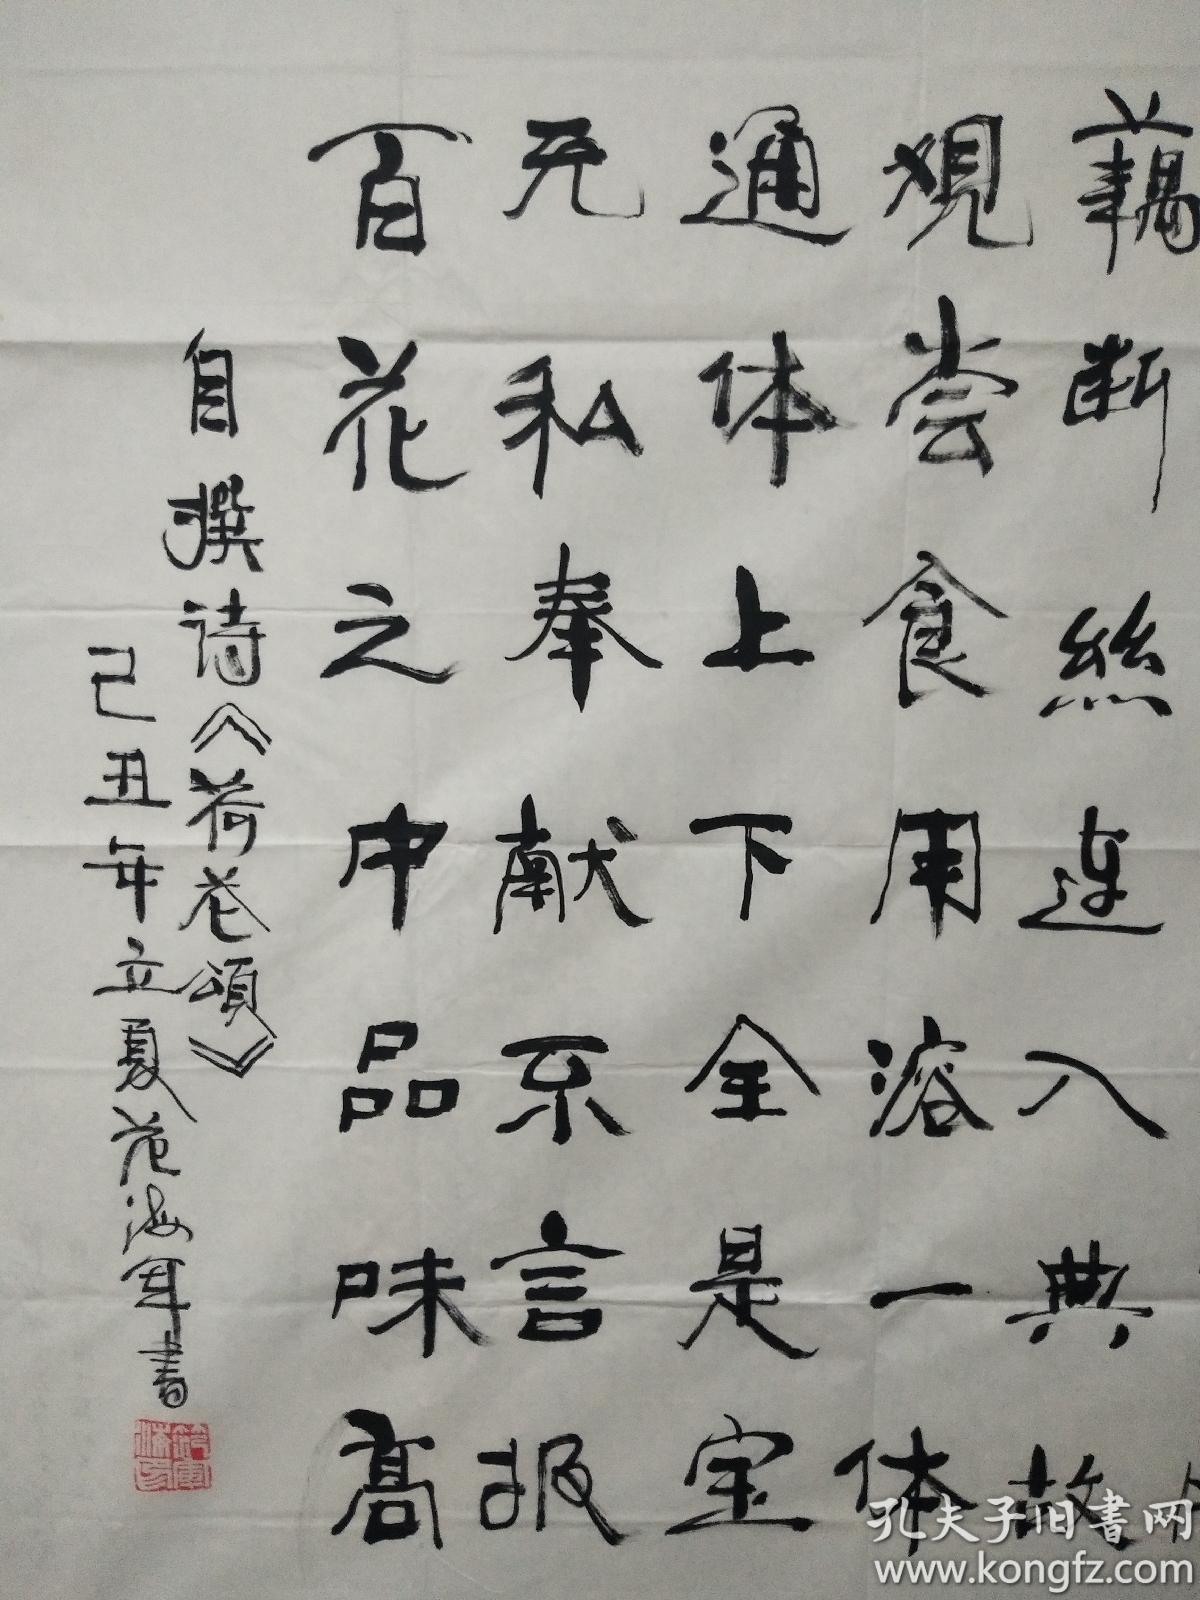 藕断絲连入典故
观尝食用溶一体
通体上下全是宝
无私奉献不言报
百花之中品味高
自撰诗《荷花颂》
己丑年立夏范海军書
孔夫子旧書网
www.kongfz.com